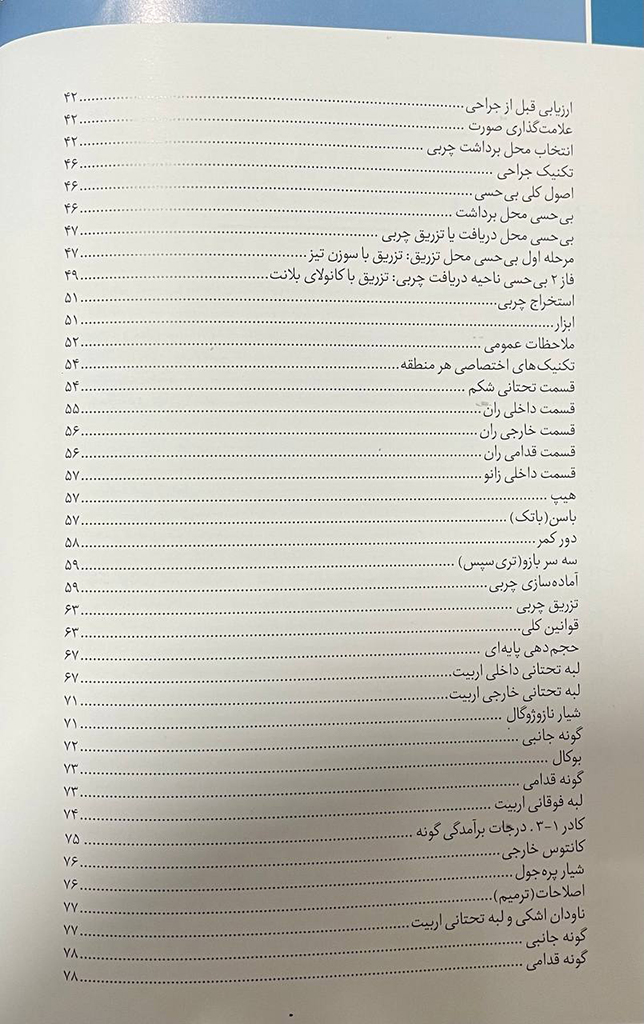 ارزیابی قبل از جراحی ........ ۴۲
علامت‌گذاری صورت ........ ۴۲
انتخاب محل برداشت چربی ........ ۴۲
تکنیک جراحی ........ ۴۶
اصول کلی بی‌حسی ........ ۴۶
بی‌حسی محل برداشت ........ ۴۶
بی‌حسی محل دریافت یا تزریق چربی ........ ۴۷
مرحله اول بی‌حسی محل تزریق: تزریق با سوزن تیز ........ ۴۷
فاز ۲ بی‌حسی ناحیه دریافت چربی: تزریق با کانولای بلانت ........ ۴۹
استخراج چربی ........ ۵۱
ابزار ........ ۵۱
ملاحظات عمومی ........ ۵۲
تکنیک‌های اختصاصی هر منطقه ........ ۵۴
قسمت تحتانی شکم ........ ۵۴
قسمت داخلی ران ........ ۵۵
قسمت خارجی ران ........ ۵۶
قسمت قدامی ران ........ ۵۶
قسمت داخلی زانو ........ ۵۷
هیپ ........ ۵۷
باسن(باتک) ........ ۵۷
دور کمر ........ ۵۸
سه سر بازو(تری‌سپس) ........ ۵۹
آماده‌سازی چربی ........ ۵۹
تزریق چربی ........ ۶۳
قوانین کلی ........ ۶۳
حجم‌دهی پایه‌ای ........ ۶۷
لبه تحتانی داخلی اربیت ........ ۶۷
لبه تحتانی خارجی اربیت ........ ۷۱
شیار نازوژوگال ........ ۷۱
گونه جانبی ........ ۷۲
بوکال ........ ۷۳
گونه قدامی ........ ۷۳
لبه فوقانی اربیت ........ ۷۴
کادر ۱-۳. درجات برآمدگی گونه ........ ۷۵
کانتوس خارجی ........ ۷۶
شیار پره‌جول ........ ۷۶
اصلاحات(ترمیم) ........ ۷۷
ناودان اشکی و لبه تحتانی اربیت ........ ۷۷
گونه جانبی ........ ۷۸
گونه قدامی ........ ۷۸